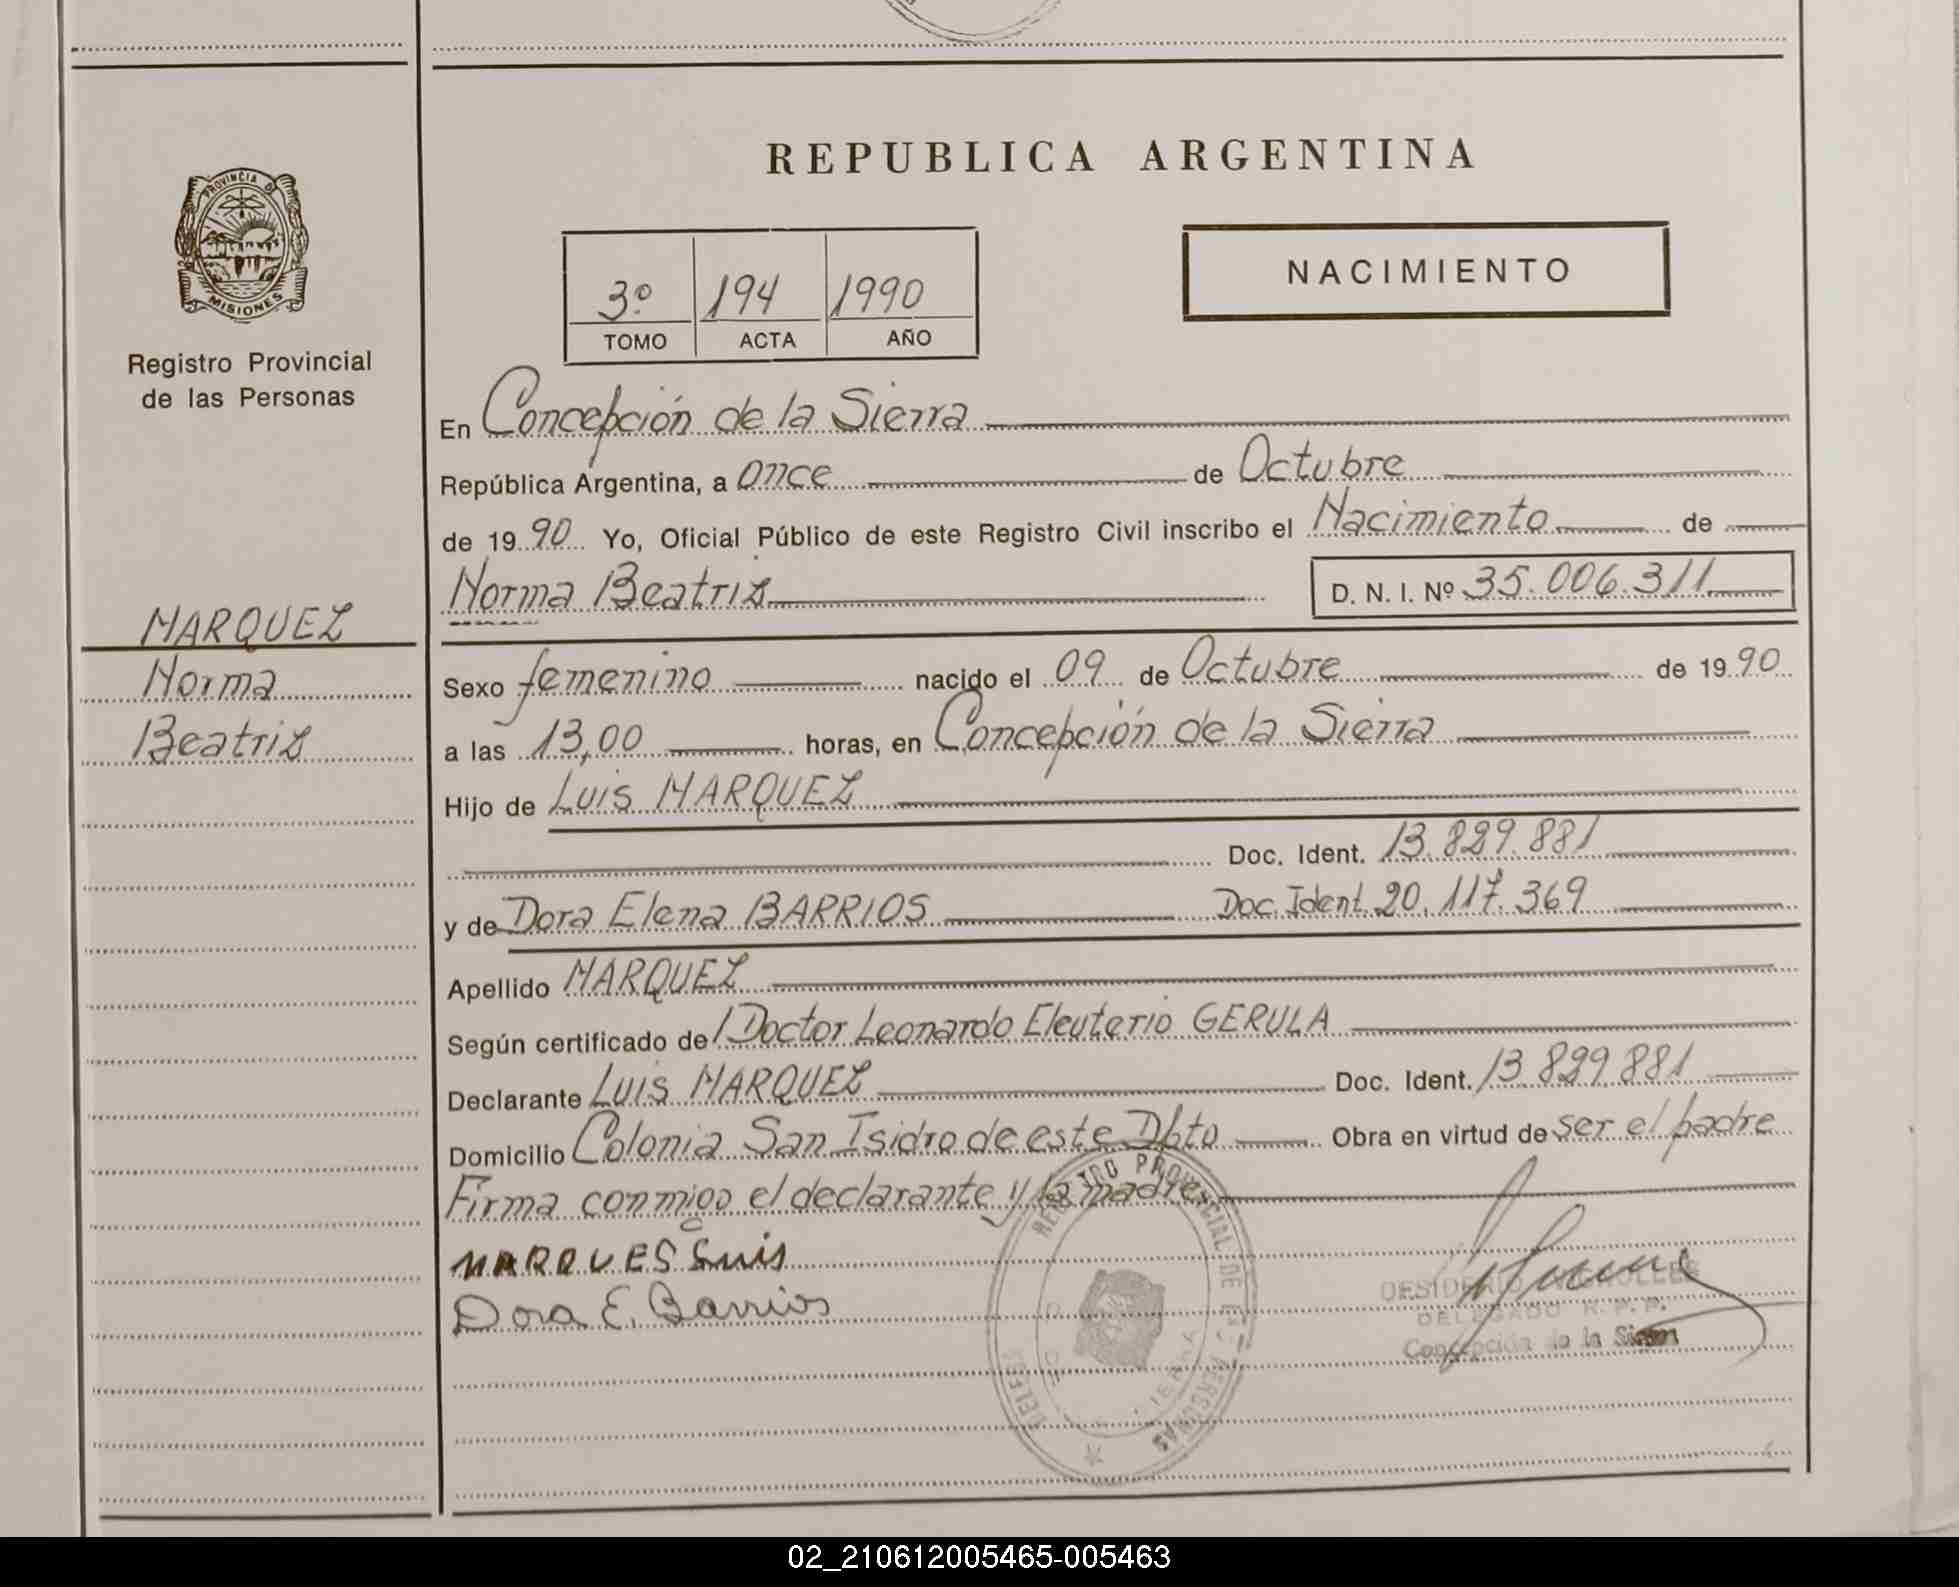 REPUBLICA ARGENTINA
PROVINCIA DE
MISIONES
Registro Provincial
de las Personas
3º 194 1990
TOMO ACTA AÑO
NACIMIENTO
En Concepción de la Sierra
República Argentina, a once de Octubre
de 1990 Yo, Oficial Público de este Registro Civil inscribo el Nacimiento de
Norma Beatriz D. N. I. Nº 35.006.311
MARQUEZ
Norma
Beatriz
Sexo femenino nacido el 09 de Octubre de 1990
a las 13,00 horas, en Concepción de la Sierra
Hijo de Luis MARQUEZ
Doc. Ident. 13.829.881
y de Dora Elena BARRIOS Doc. Ident. 20.117.369
Apellido MARQUEZ
Según certificado de l Doctor Leonardo Eleuterio GERULA
Declarante Luis MARQUEZ Doc. Ident. 13.829.881
Domicilio Colonia San Isidro de este Dpto Obra en virtud de ser el padre
Firma conmigo el declarante y la madre
MARQUES Luis
Dora E. Barrios
REGISTRO PROVINCIAL DE LAS PERSONAS
DESIDERIO
DELEGADO R. P. P.
Concepción de la Sierra
02_210612005465-005463